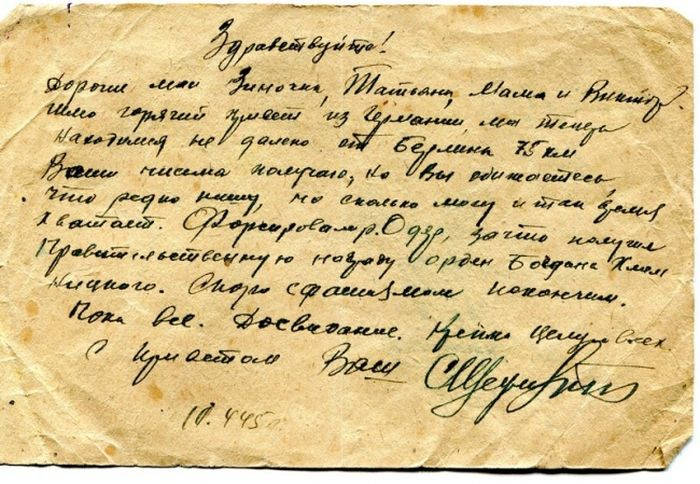 Здравствуйте!
Дорогие мои Зиночка, Татьяна, Мама и Виктор.
Шлю горячий привет из Германии, мы теперь
находимся не далеко от Берлина 75 км
Ваши письма получаю, но Вы обижаетесь,
что редко пишу, но сколько могу и так время
хватает. Форсировали р. Одер, за что получил
Правительственную награду орден Богдана Хмель
ницкого. Скоро с фашизмом покончим.
Пока все. Досвидание. Крепко целую всех
С приветом Ваш
10.4 45г